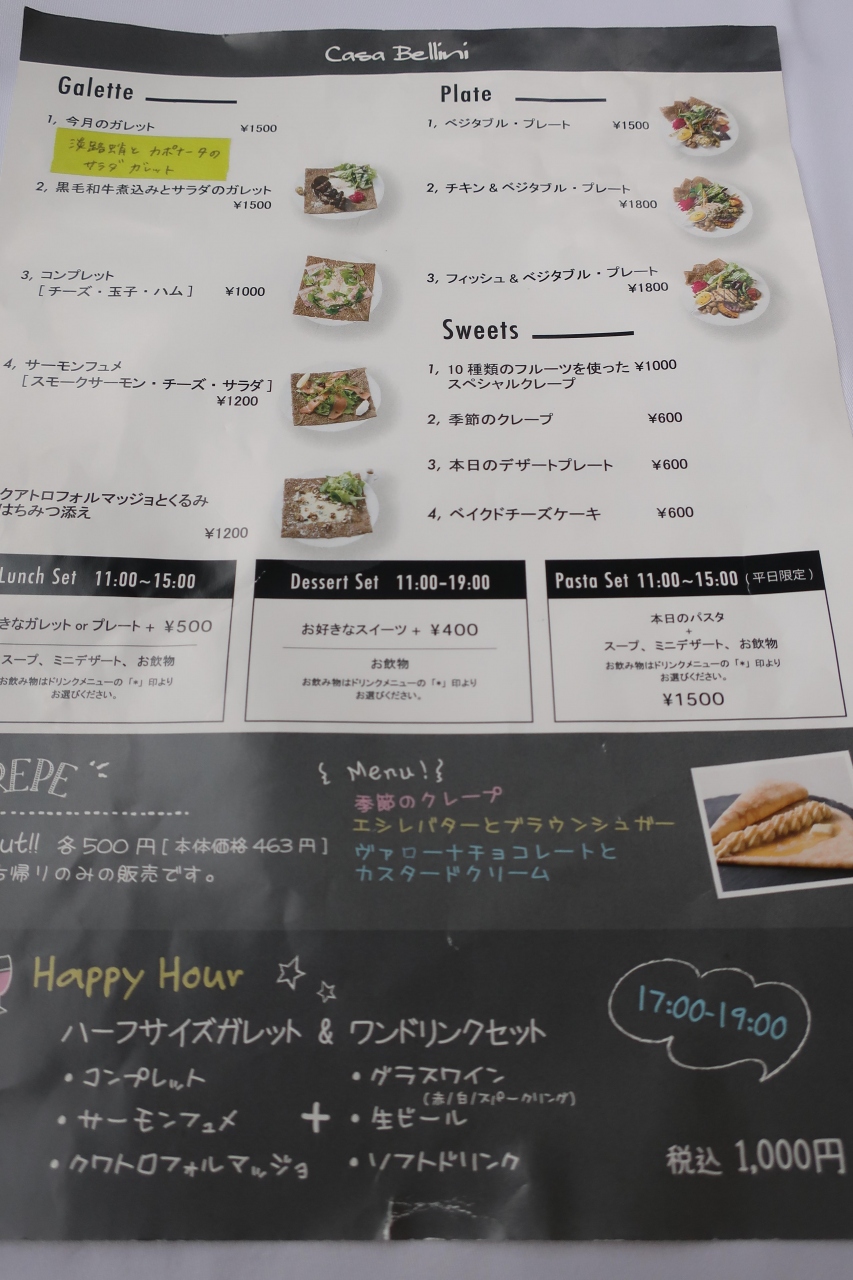 Casa Bellini
Galette
1, 今月のガレット ¥1500
淡路蛸と カポナータの
サラダ ガレット
2, 黒毛和牛煮込みとサラダのガレット
¥1500
3, コンプレット
[ チーズ・玉子・ハム ] ¥1000
4, サーモンフュメ
[ スモークサーモン・チーズ・サラダ ]
¥1200
クアトロフォルマッジョとくるみ
はちみつ添え
¥1200
Plate
1, ベジタブル・プレート ¥1500
2, チキン & ベジタブル・プレート
¥1800
3, フィッシュ & ベジタブル・プレート
¥1800
Sweets
1, 10 種類のフルーツを使った ¥1000
スペシャルクレープ
2, 季節のクレープ ¥600
3, 本日のデザートプレート ¥600
4, ベイクドチーズケーキ ¥600
Lunch Set 11:00~15:00
きなガレット or プレート + ¥500
スープ、ミニデザート、お飲物
お飲み物はドリンクメニューの「*」印より
お選びください。
Dessert Set 11:00-19:00
お好きなスイーツ + ¥400
お飲物
お飲み物はドリンクメニューの「*」印より
お選びください。
Pasta Set 11:00~15:00 (平日限定)
本日のパスタ
+
スープ、ミニデザート、お飲物
お飲み物はドリンクメニューの「*」印より
お選びください。
¥1500
REPE
ut!! 各500円[本体価格463円]
ち帰りのみの販売です。
{ Menu! }
季節のクレープ
エシレバターとブラウンシュガー
ヴァローナチョコレートと
カスタードクリーム
Happy Hour
17:00-19:00
ハーフサイズガレット & ワンドリンクセット
・コンプレット
・サーモンフュメ
・クワトロフォルマッジョ
+
・グラスワイン
(赤/白/スパークリング)
・生ビール
・ソフトドリンク
税込 1,000円